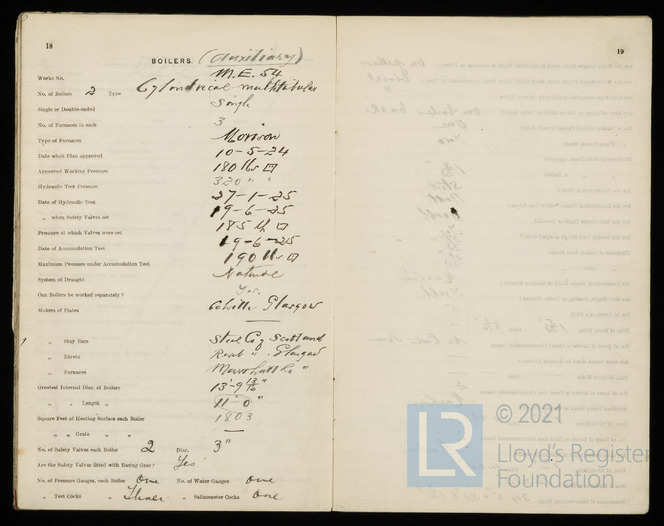 18
BOILERS. (Auxiliary)
Works No. M.E. 54
No. of Boilers 2 Type Cylindrical multitubular
Single or Double-ended Single
No. of Furnaces in each 3
Type of Furnaces Morison
Date when Plan approved 10-5-24
Approved Working Pressure 180 lbs □
Hydraulic Test Pressure 320 " "
Date of Hydraulic Test 27-1-25
" when Safety Valves set 19-6-25
Pressure at which Valves were set 185 lb □
Date of Accumulation Test 19-6-25
Maximum Pressure under Accumulation Test 190 lbs □
System of Draught Natural
Can Boilers be worked separately? Yes.
Makers of Plates Colville Glasgow
" Stay Bars Steel Co of Scotland
" Rivets Rivet " Glasgow
" Furnaces "
Greatest Internal Diar. of Boilers 13'-9 13/16"
" " Length " 11'-0"
Square Feet of Heating Surface each Boiler 1803
" " Grate " "
No. of Safety Valves each Boiler 2 Diar. 3"
Are the Safety Valves fitted with Easing Gear? Yes
No. of Pressure Gauges, each Boiler One No. of Water Gauges One
" Test Cocks " Three " Salinometer Cocks One
19
© 2021
LR
Lloyd's Register
Foundation